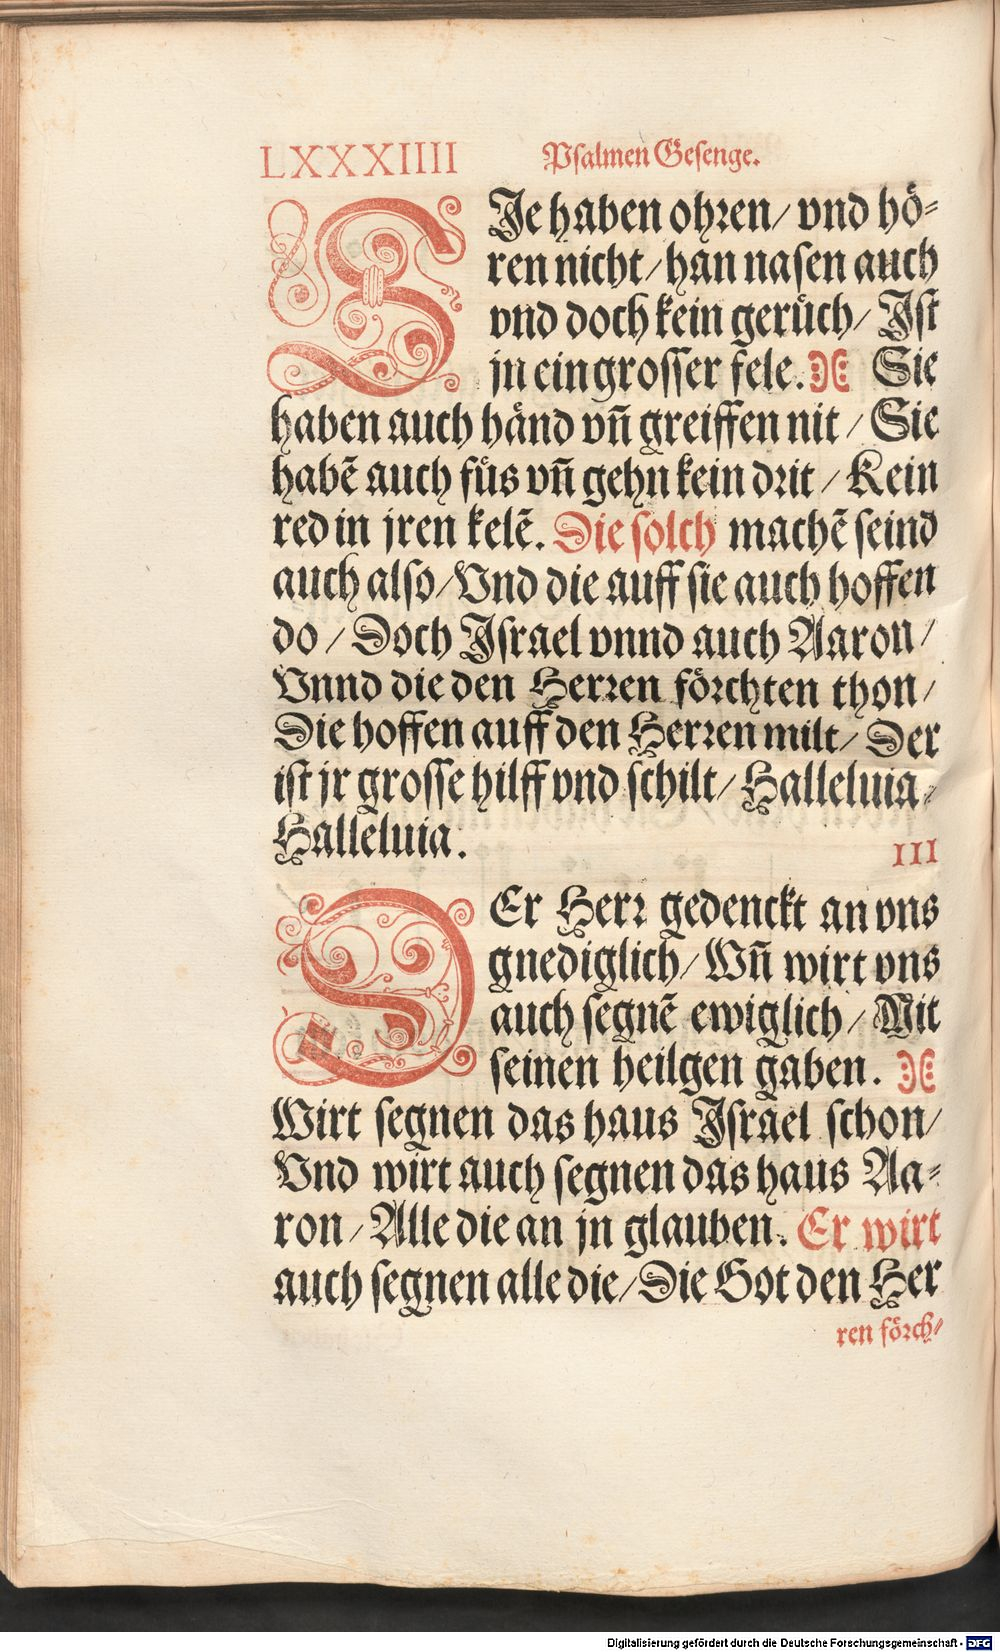 LXXXIIII Psalmen Gesenge.
SIe haben ohren/ vnd hö-
ren nicht/ han nasen auch
vnd doch kein gerüch/ Ist
jn ein grosser fele. Sie
haben auch händ vn̄ greiffen nit/ Sie
habē auch füs vn̄ gehn kein drit/ Kein
red in jren kelē. Die solch machē seind
auch also/ Vnd die auff sie auch hoffen
do/ Doch Israel vnnd auch Aaron/
Vnnd die den Herren förchten thon/
Die hoffen auff den Herren milt/ Der
ist jr grosse hilff vnd schilt/ Halleluia,
Halleluia.
III
DEr Herr gedenckt an vns
gnediglich/ Wn̄ wirt vns
auch segnē ewiglich/ Mit
seinen heilgen gaben.
Wirt segnen das haus Israel schon/
Vnd wirt auch segnen das haus Aa-
ron/ Alle die an jn glauben. Er wirt
auch segnen alle die/ Die Got den Her
ren förch-
Digitalisierung gefördert durch die Deutsche Forschungsgemeinschaft - DFG